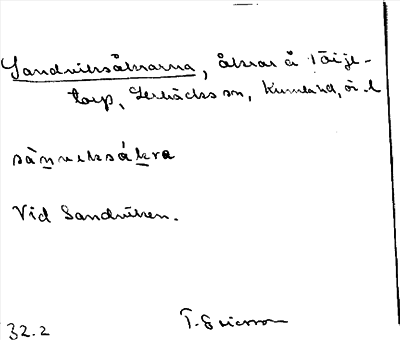 Sandviksåkrarna, åkrar å Töije-
torp, Lerbäcks sn, Kumla hd, ö. l
sànneksåkra
Vid Sandviken.
32.2 T. Ericsson